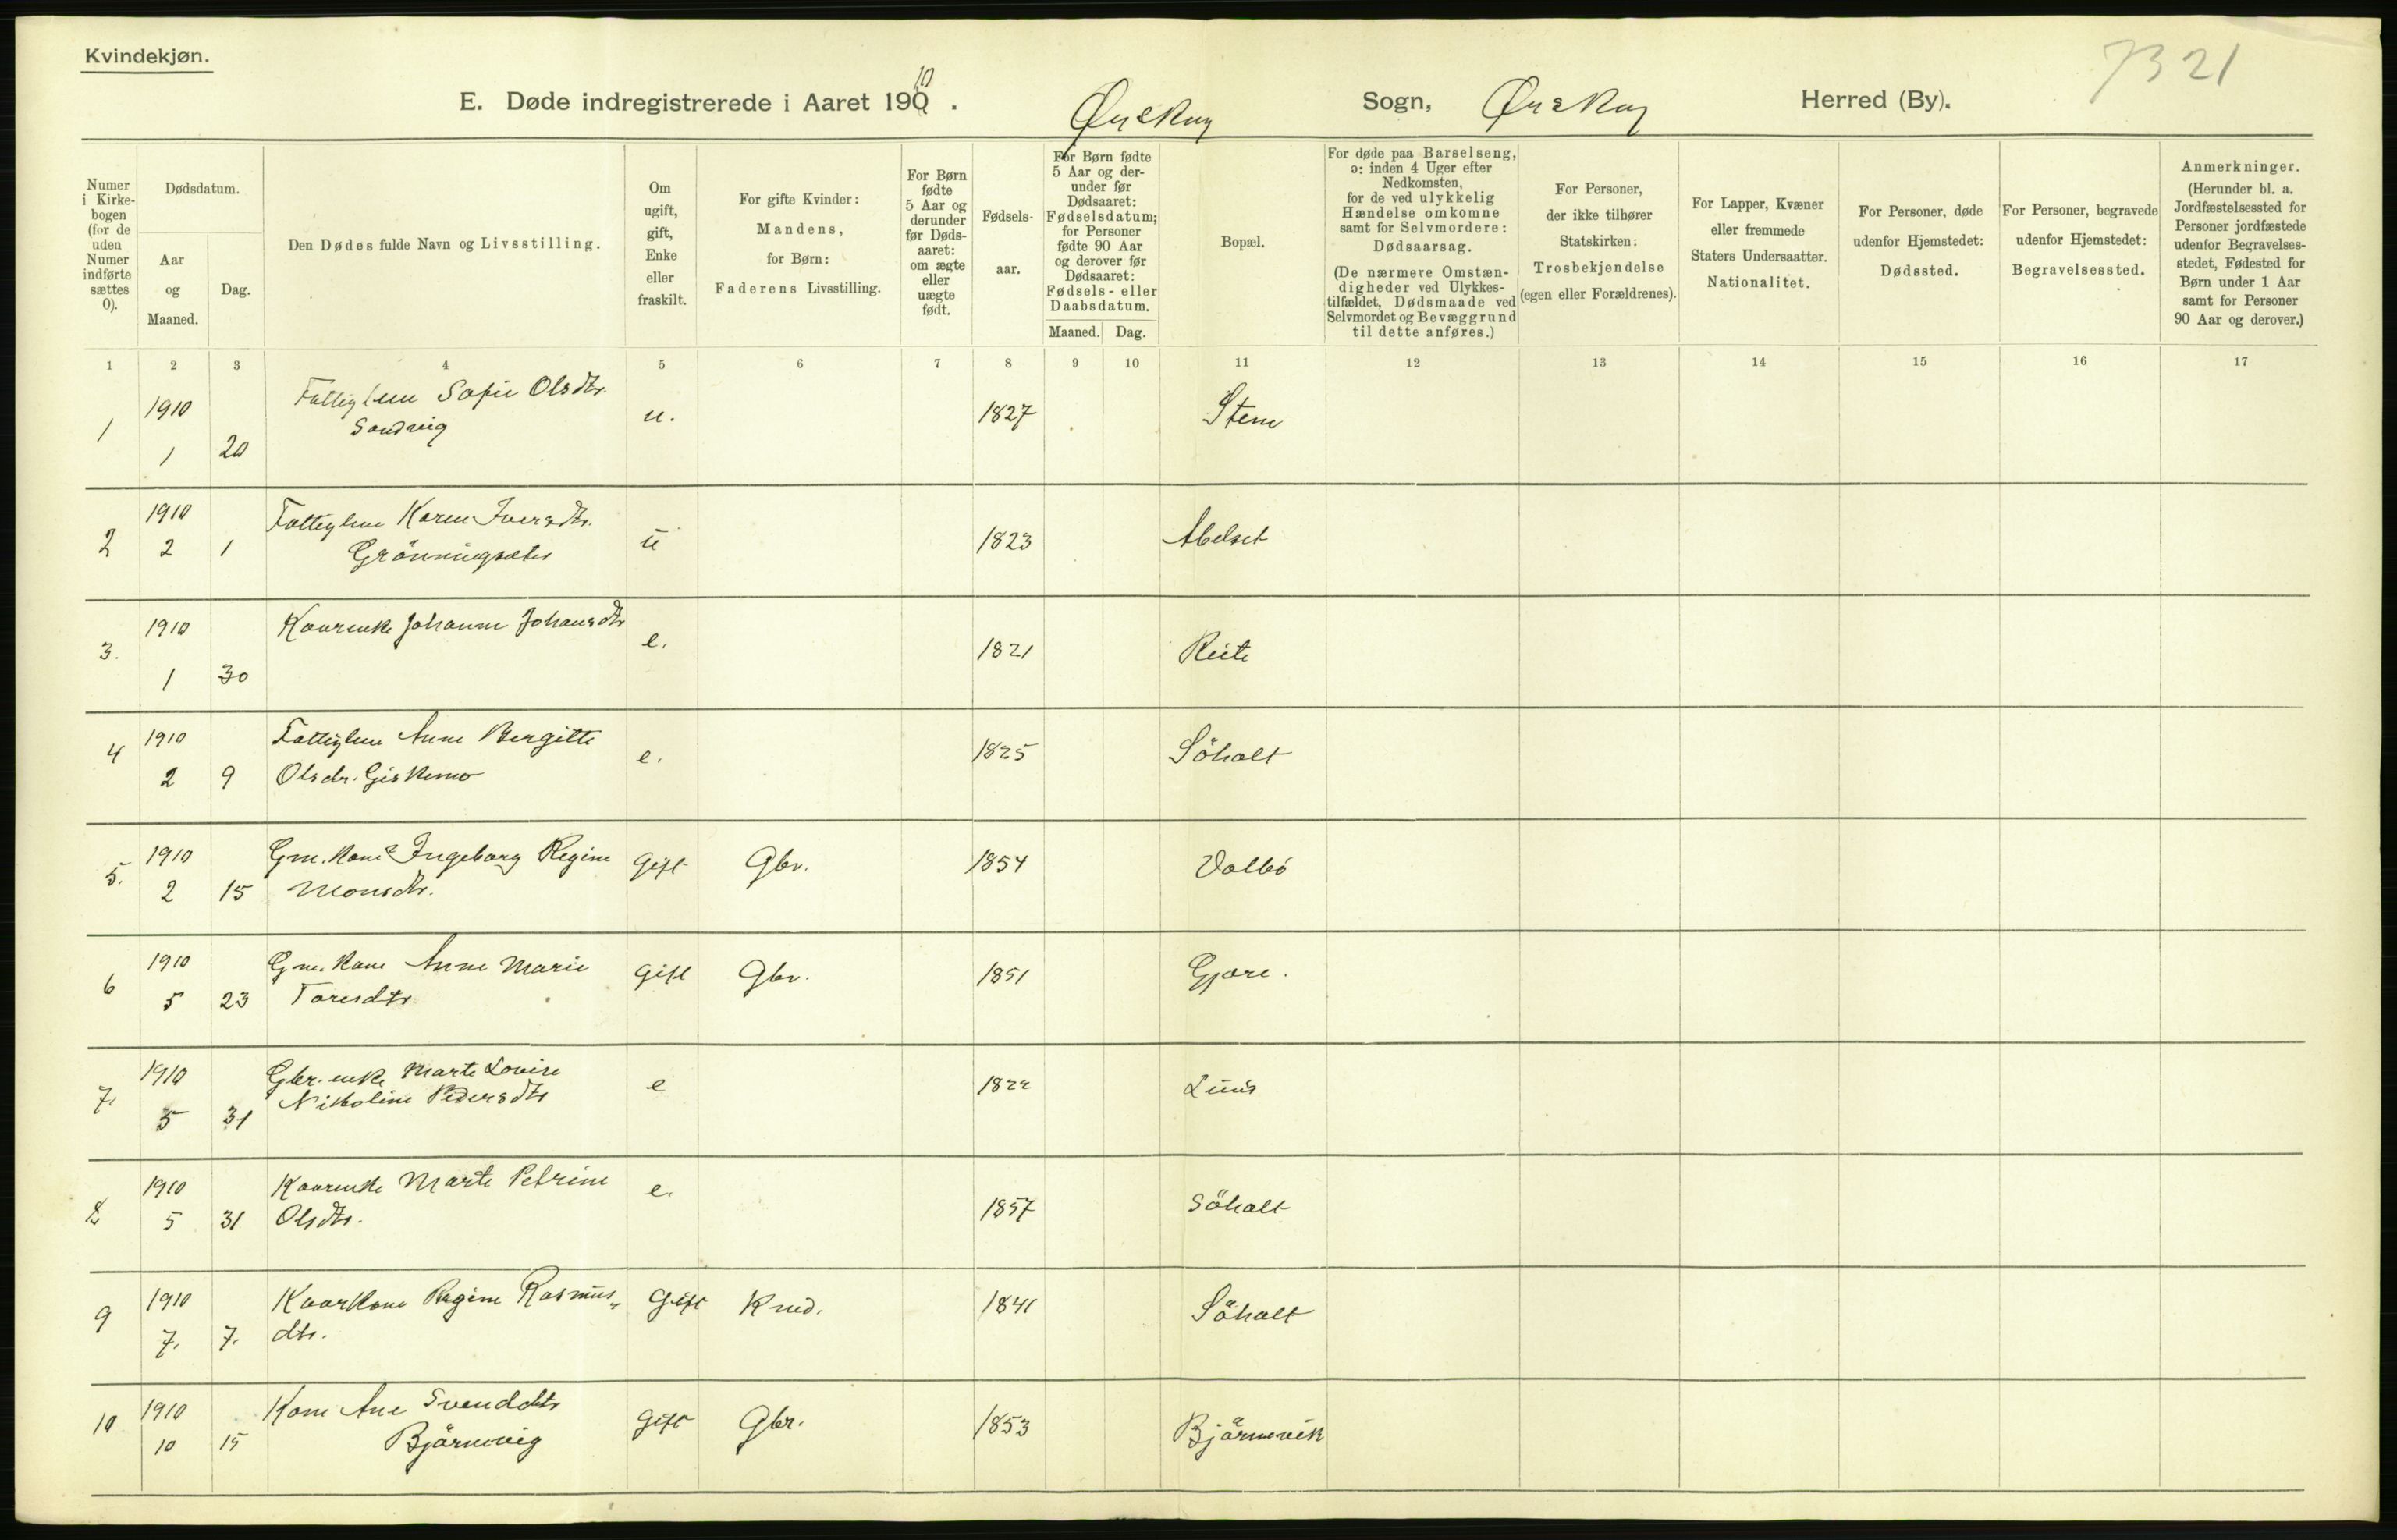 Kvindekjøn.
7321
E. Døde indregistrerede i Aaret 1910. Ørskog Sogn, Ørskog Herred (By).
Numer i Kirkebogen (for de uden Numer indførte sættes 0).
Dødsdatum.
Aar og Maaned.
Dag.
Den Dødes fulde Navn og Livsstilling.
Om ugift, gift, Enke eller fraskilt.
For gifte Kvinder: Mandens, for Børn: Faderens Livsstilling.
For Børn fødte 5 Aar og derunder før Dødsaaret: om ægte eller uægte født.
Fødselsaar.
For Børn fødte 5 Aar og derunder før Dødsaaret: Fødselsdatum; for Personer fødte 90 Aar og derover før Dødsaaret: Fødsels- eller Daabsdatum.
Maaned. Dag.
Bopæl.
For døde paa Barselseng, ɔ: inden 4 Uger efter Nedkomsten, for de ved ulykkelig Hændelse omkomne samt for Selvmordere: Dødsaarsag.
(De nærmere Omstændigheder ved Ulykkestilfældet, Dødsmaade ved Selvmordet og Bevæggrund til dette anføres.)
For Personer, der ikke tilhører Statskirken: Trosbekjendelse (egen eller Forældrenes).
For Lapper, Kvæner eller fremmede Staters Undersaatter. Nationalitet.
For Personer, døde udenfor Hjemstedet: Dødssted.
For Personer, begravede udenfor Hjemstedet: Begravelsessted.
Anmerkninger.
(Herunder bl. a. Jordfæstelsessted for Personer jordfæstede udenfor Begravelsesstedet, Fødested for Børn under 1 Aar samt for Personer 90 Aar og derover.)
1 2 3 4 5 6 7 8 9 10 11 12 13 14 15 16 17
1 1910 1 20 Fattiglem Sofie Olsdtr. Sandvig u. 1827 Stene
2 1910 2 1 Fattiglem Karen Iversdtr. Grönningsæter u 1823 Abelset
3. 1910 1 30 Kaarenke Johanne Johansdtr e. 1821 Reite
4 1910 2 9 Fattiglem Anne Bergitte Olsdr. Giskemo e. 1825 Söholt
5. 1910 2 15 Gm. Kone Ingeborg Regine Monsdtr. Gift Gbr. 1854 Valbö
6 1910 5 23 Gm. Kone Anne Marie Toresdtr Gift Gbr. 1851 Gjære.
7. 1910 5 31 Gbr. enke Marte Lovise Nikoline Pedersdtr e 1822
8 1910 5 31 Kaarenke Marte Petrine Olsdtr. e. 1857 Söholt
9 1910 7. 7. Kaarkone Regine Rasmusdtr. Gift Kmd. 1841 Söholt
10 1910 10 15 Kone Ane Svendsdtr Björnevig Gift Gbr. 1853 Björnevik